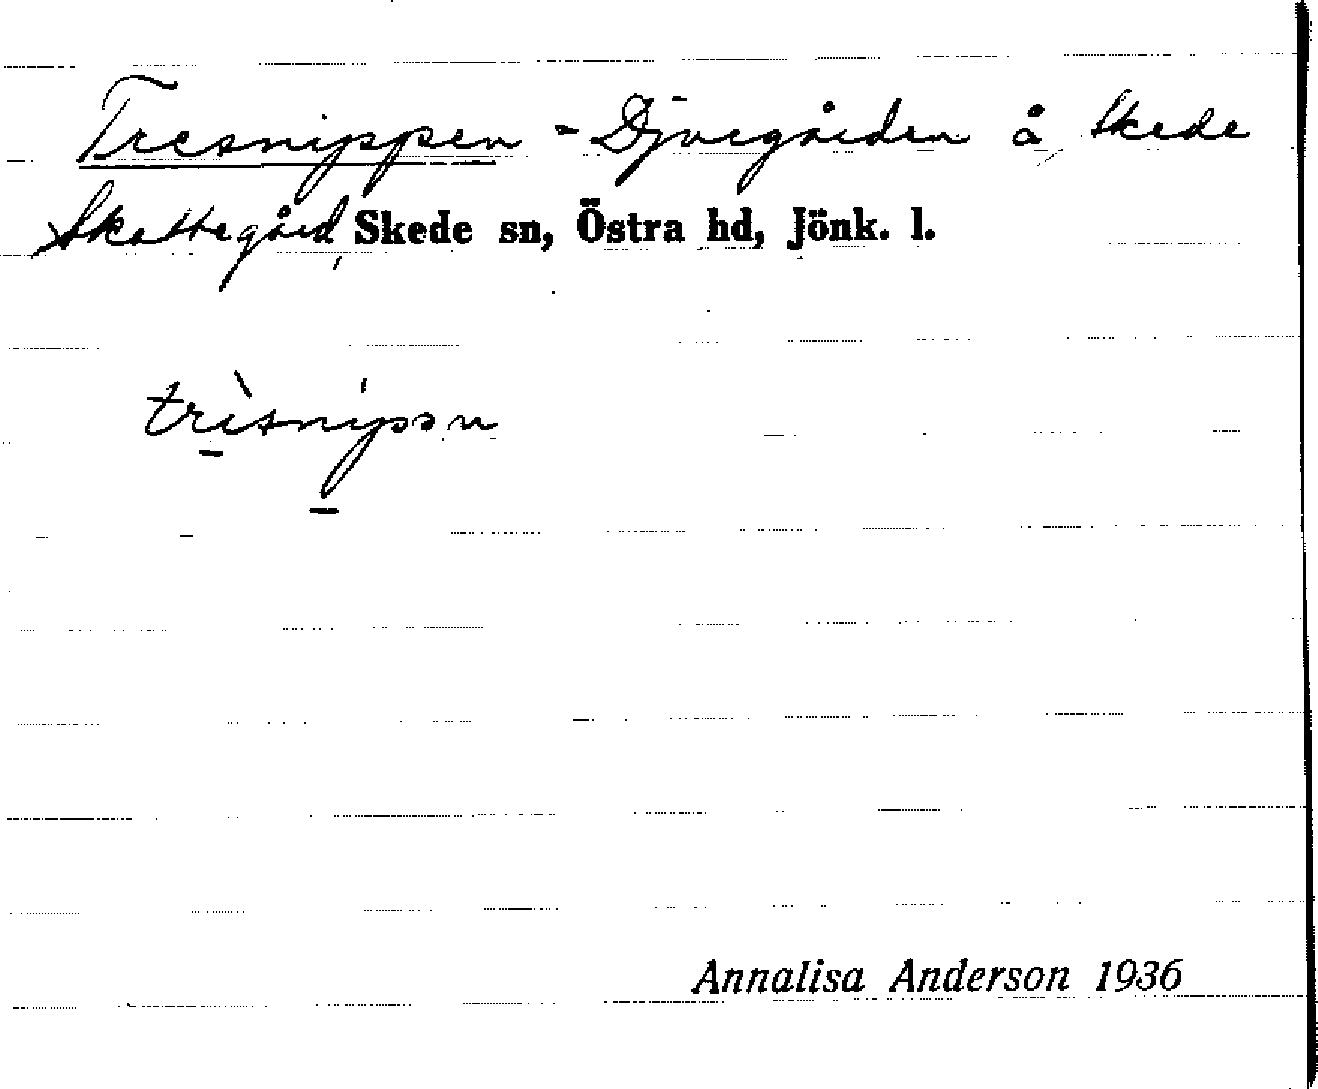 Tresnippen = Djuregården å Skede
Skattegård, Skede sn, Östra hd, Jönk. l.
trìsnípən
Annalisa Anderson 1936